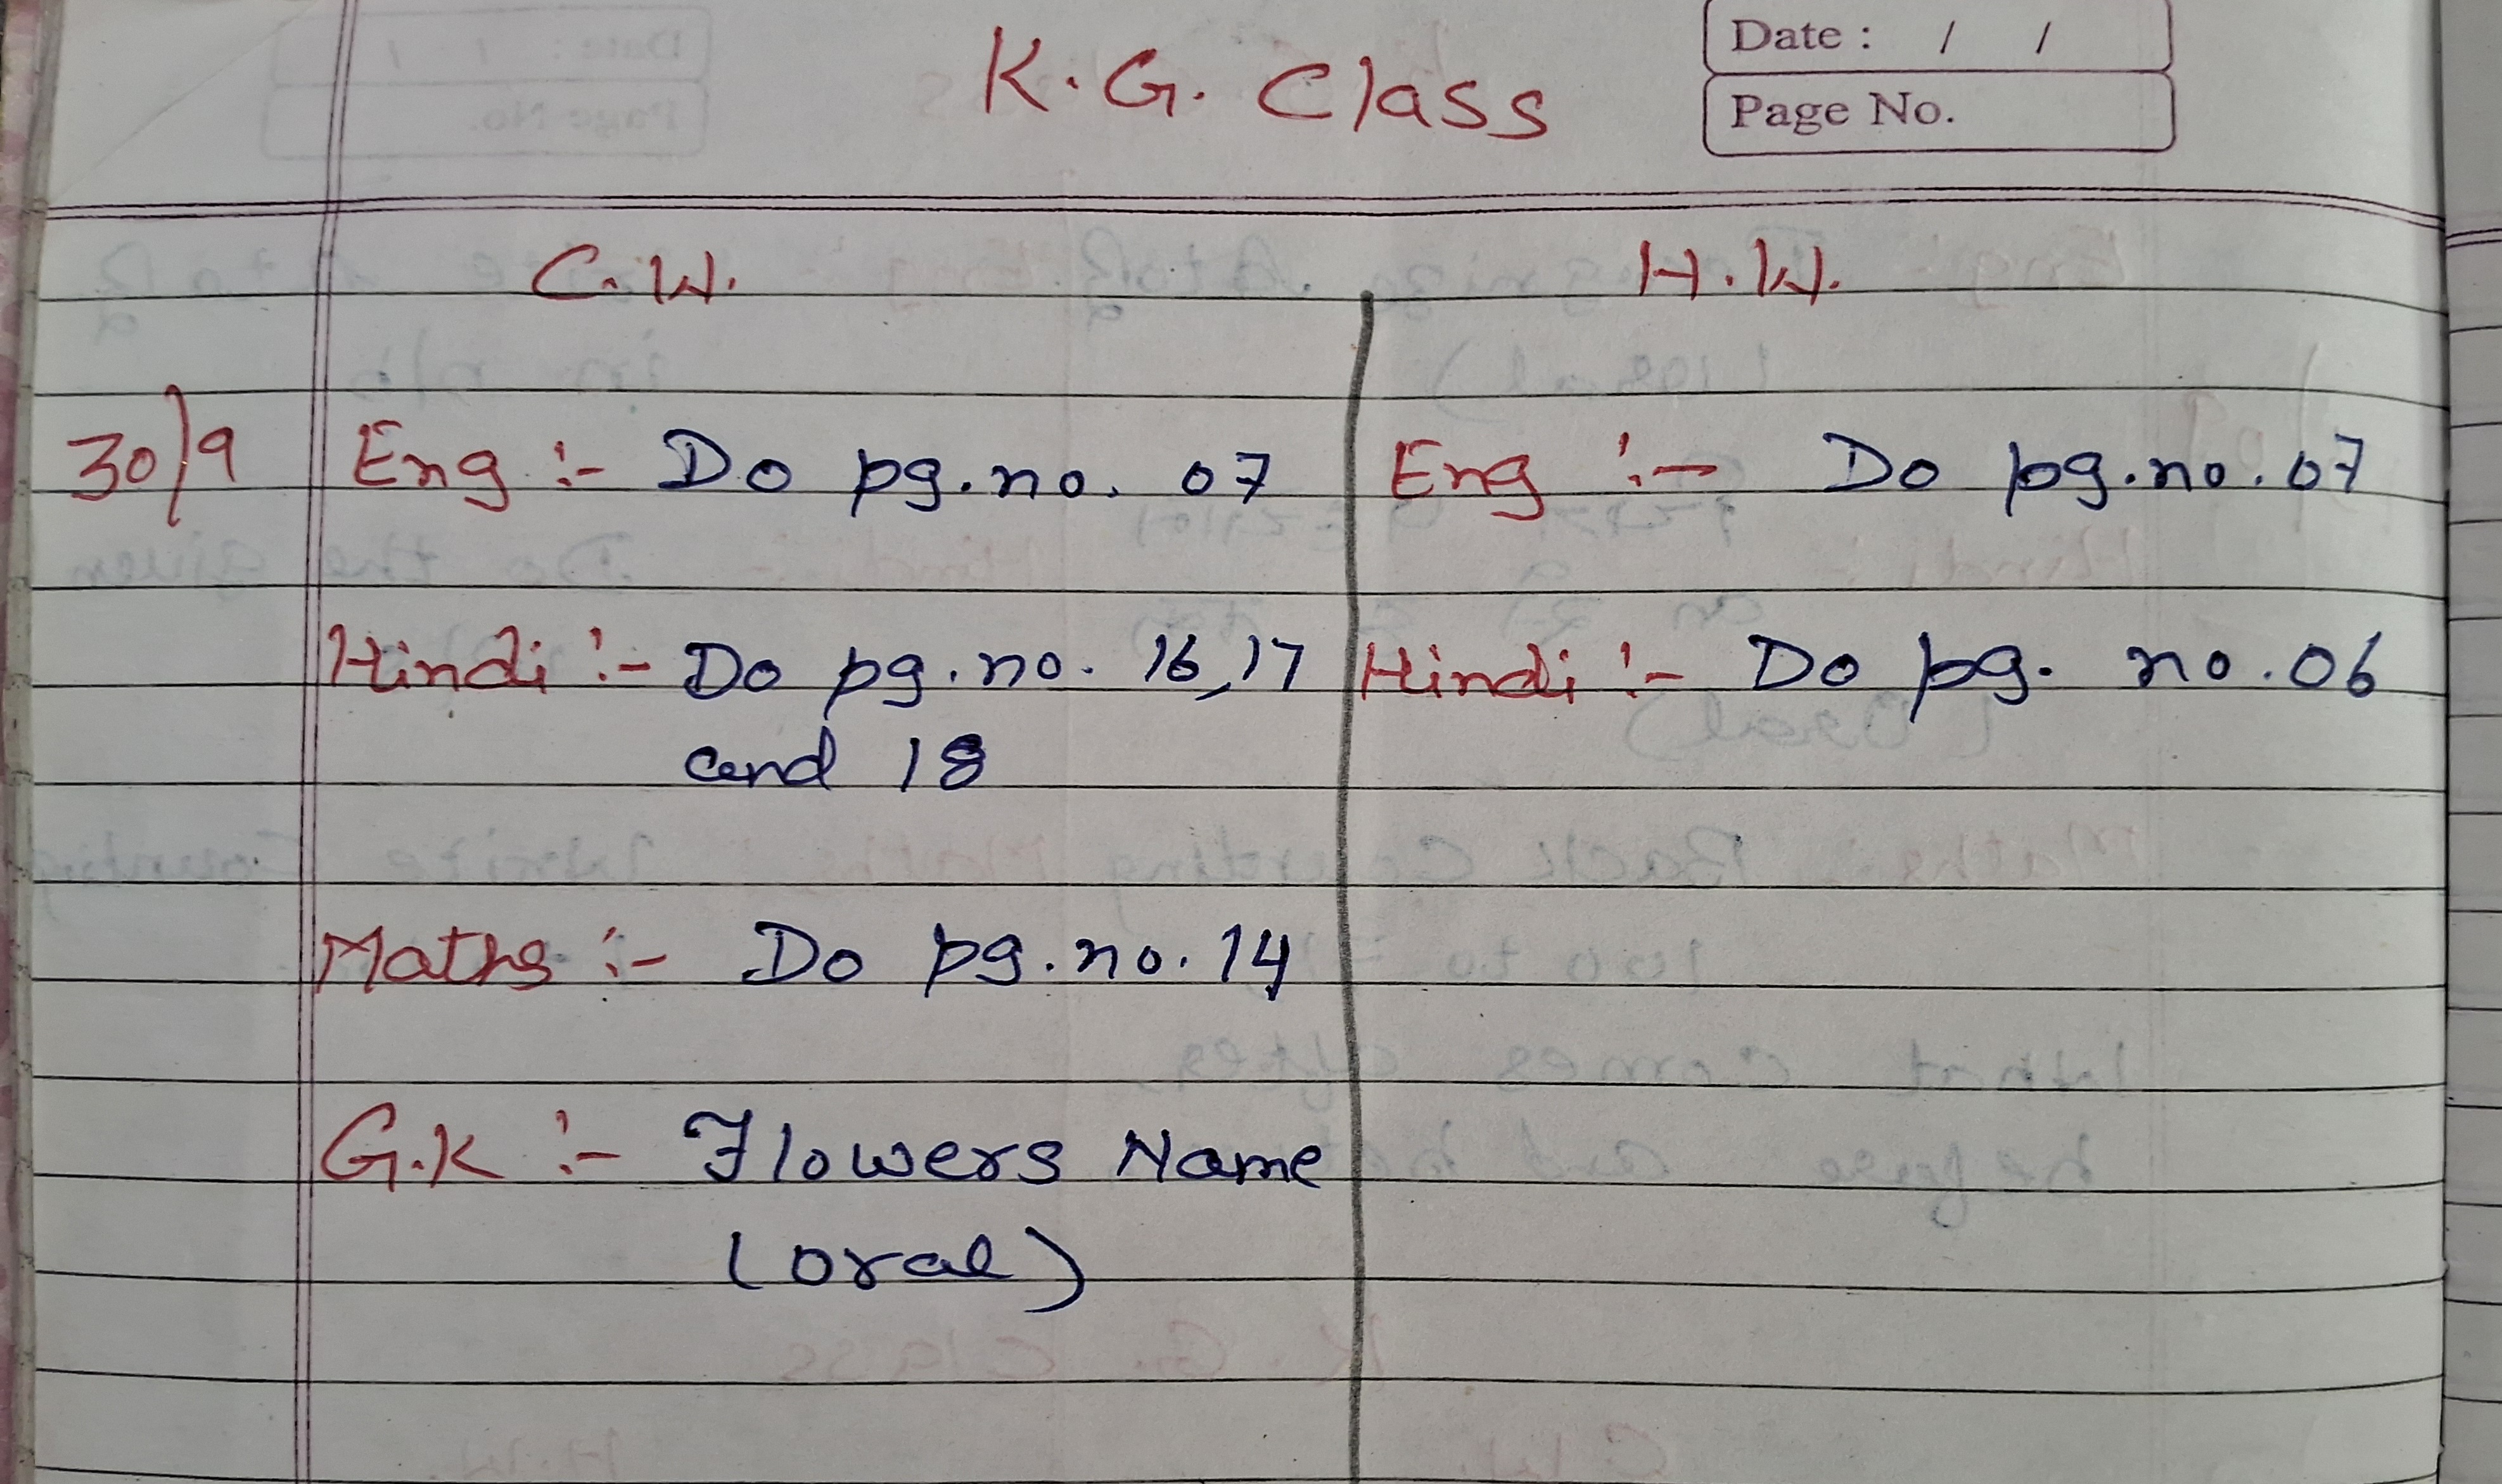 Date : / /
Page No.
K.G. Class
C.W.
H.W.
30/9
Eng :- Do pg. no. 07
Hindi :- Do pg. no. 16,17
and 18
Maths :- Do pg. no. 14
G.K :- Flowers Name
(oral)
Eng :- Do pg. no. 07
Hindi :- Do pg. no. 06